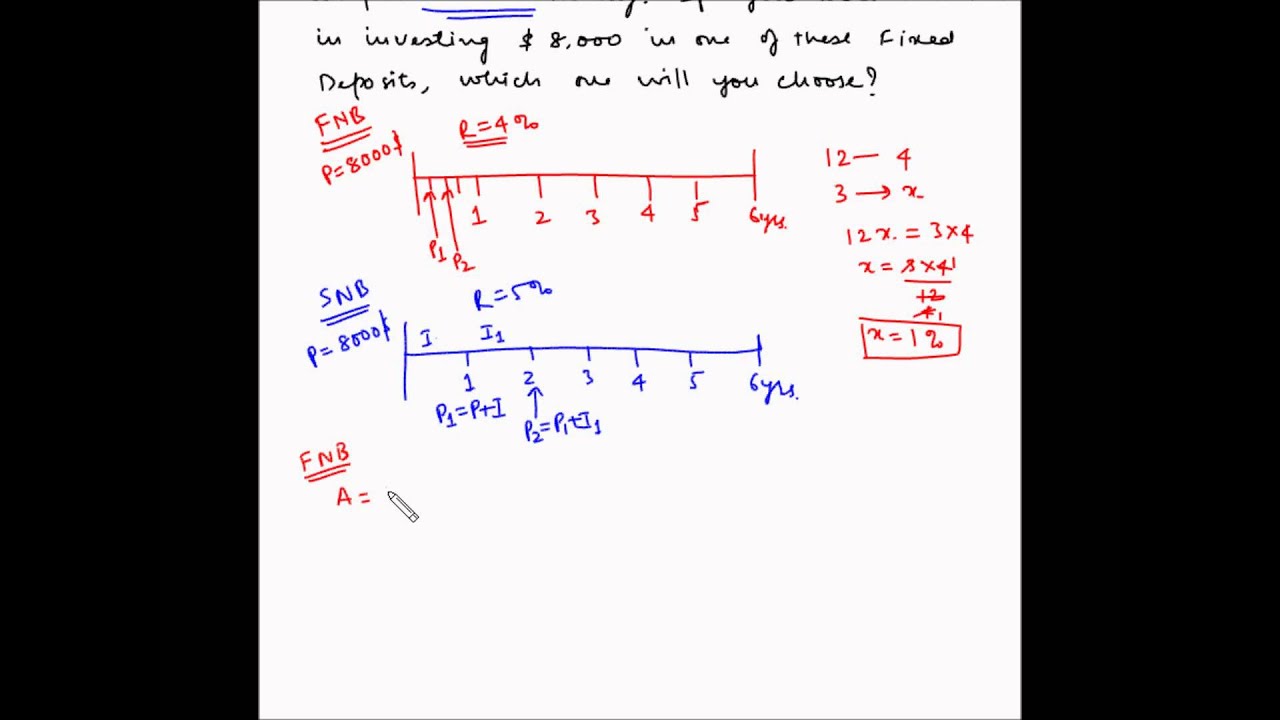 in investing $ 8,000 in one of these Fixed
Deposits, which one will you choose?
FNB
P=8000$
R=4%
1 2 3 4 5 6yrs.
P1
P2
12 — 4
3 → x
12x = 3×4
x = 3×4 1
12
4 1
x=1%
SNB
P=8000$
R=5%
I I1
1 2 3 4 5 6yrs.
P1=P+I
P2=P1+I1
FNB
A=